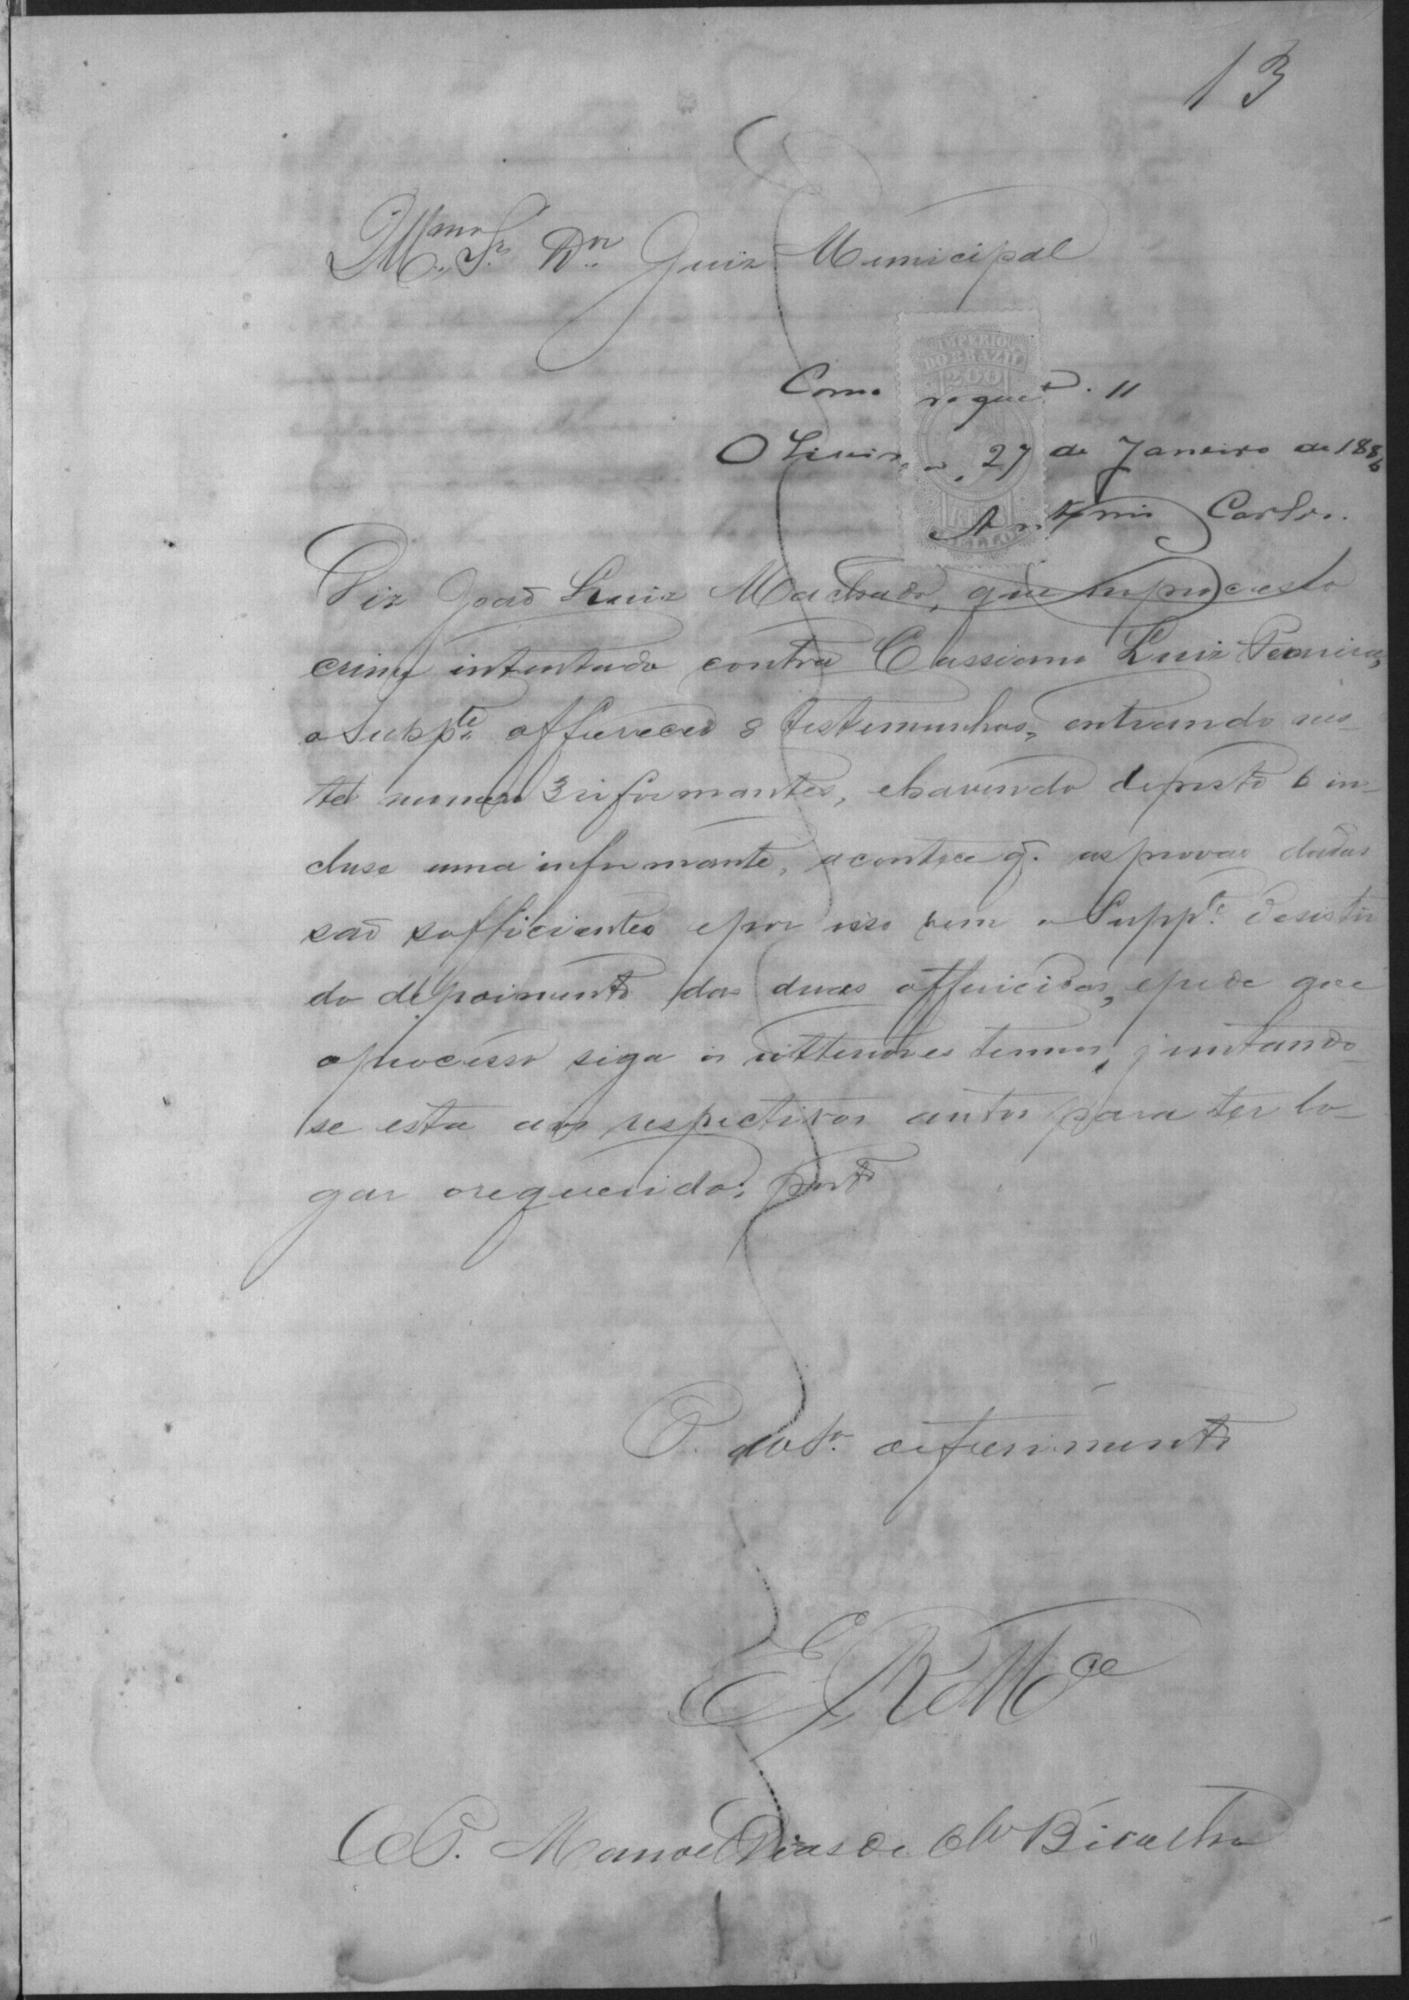 13
Illmo. Sr. Dor. Juiz Municipal
IMPERIO
DO BRAZIL
200
Como requer. //
Oliveira, 27 de Janeiro de 1886
Antonio Carlos.
Diz João Luiz Machado, que no processo
crime intentado contra Cassiano Luiz Pereira,
o Suppte. offereceo 8 testemunhas, entrando nes-
te numero 3 informantes, e havendo deposto 6 in-
cluse uma informante, acontece q. as provas dadas
são sufficientes e por isso vem o Suppe. desistir
do depoimento das duas offerecidas, e pede que
o processo siga os ulteriores termos, juntando-
se esta aos respectivos autos para ter lo-
gar o requerido; porto
P. deferimento
E R Mce
Manoel Dias de Bicalho